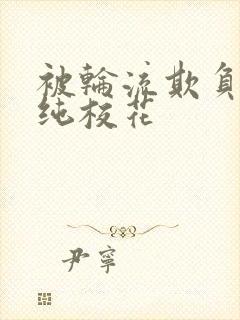 被輪流欺負
纯校花
尹寧